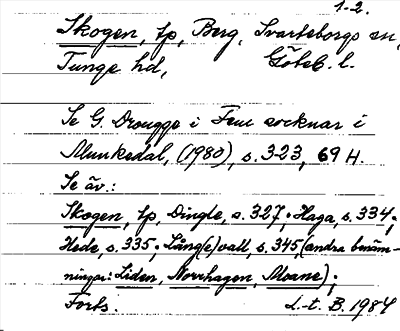 1-2.
Skogen, tp, Berg, Svarteborgs sn,
Tunge hd, Göteb. l.
Se G. Drougge i Fem socknar i
Munkedal, (1980), s. 323, 69 H.
Se äv.:
Skogen, tp, Dingle, s. 327; Haga, s. 334;
Hede, s. 335; Läng(e)vall, s. 345 (andra benäm-
ningar: Liden, Norrhagen, Moane);
Forts. L.-t. B. 1984